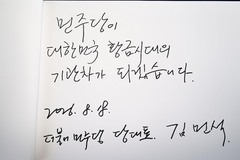 민주당이
대한민국 황금시대의
기관차가 되겠습니다.
2026. 8. 18.
더불어민주당 당대표 김민석